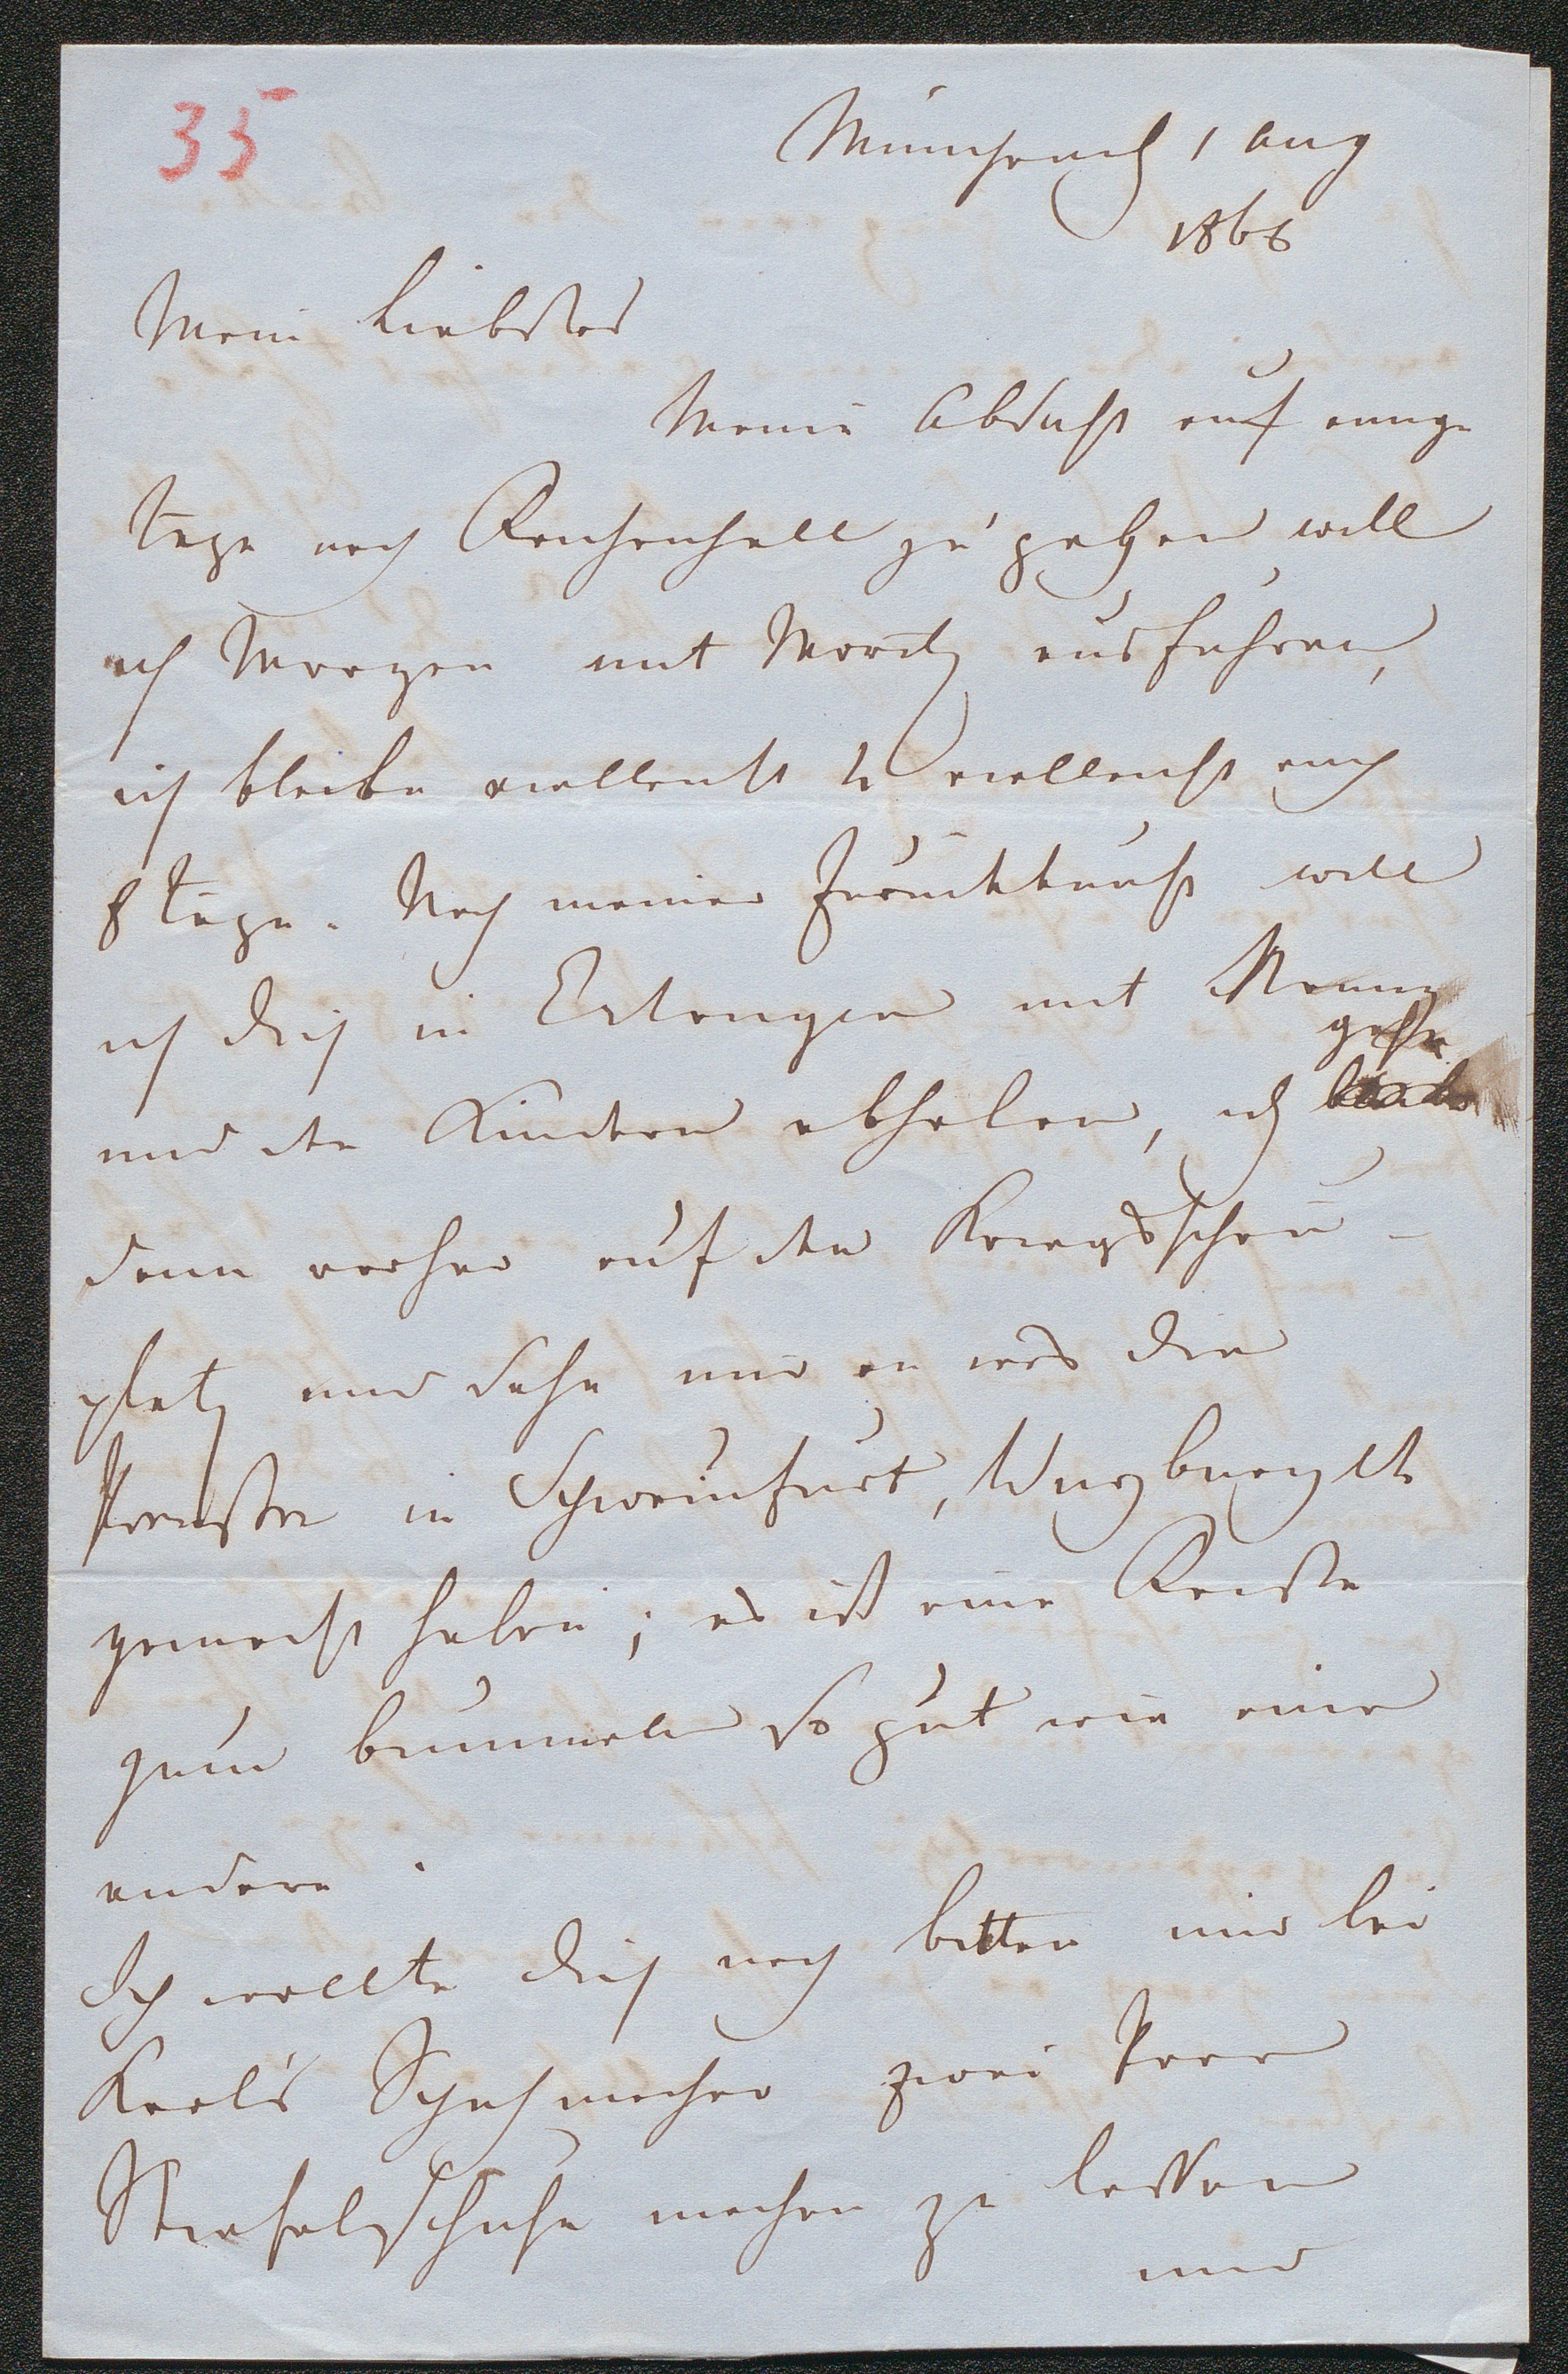 35
München 1 Aug
1866
Mein Liebstes
Meine Absicht auf einige
Tage nach Reichenhall zu gehen will
ich Morgen mit Moritz ausführen,
ich bleibe vielleicht 4 vielleicht auch
8 Tage. Nach meiner Zurückkunft will
ich dich in Erlangen mit
und den Kindern abholen, ich
gehe
dann vorher auf den Kriegsschau-
platz und sehe mir an was die
Preussen in Schweinfurt, Würzburg etc
gemacht haben; es ist eine Reise
zum bummeln so gut wie eine
andere.
Ich wollte dich noch bitten mir bei
Karl's Schuhmacher zwei Paar
Stiefelschuhe machen zu lassen
und